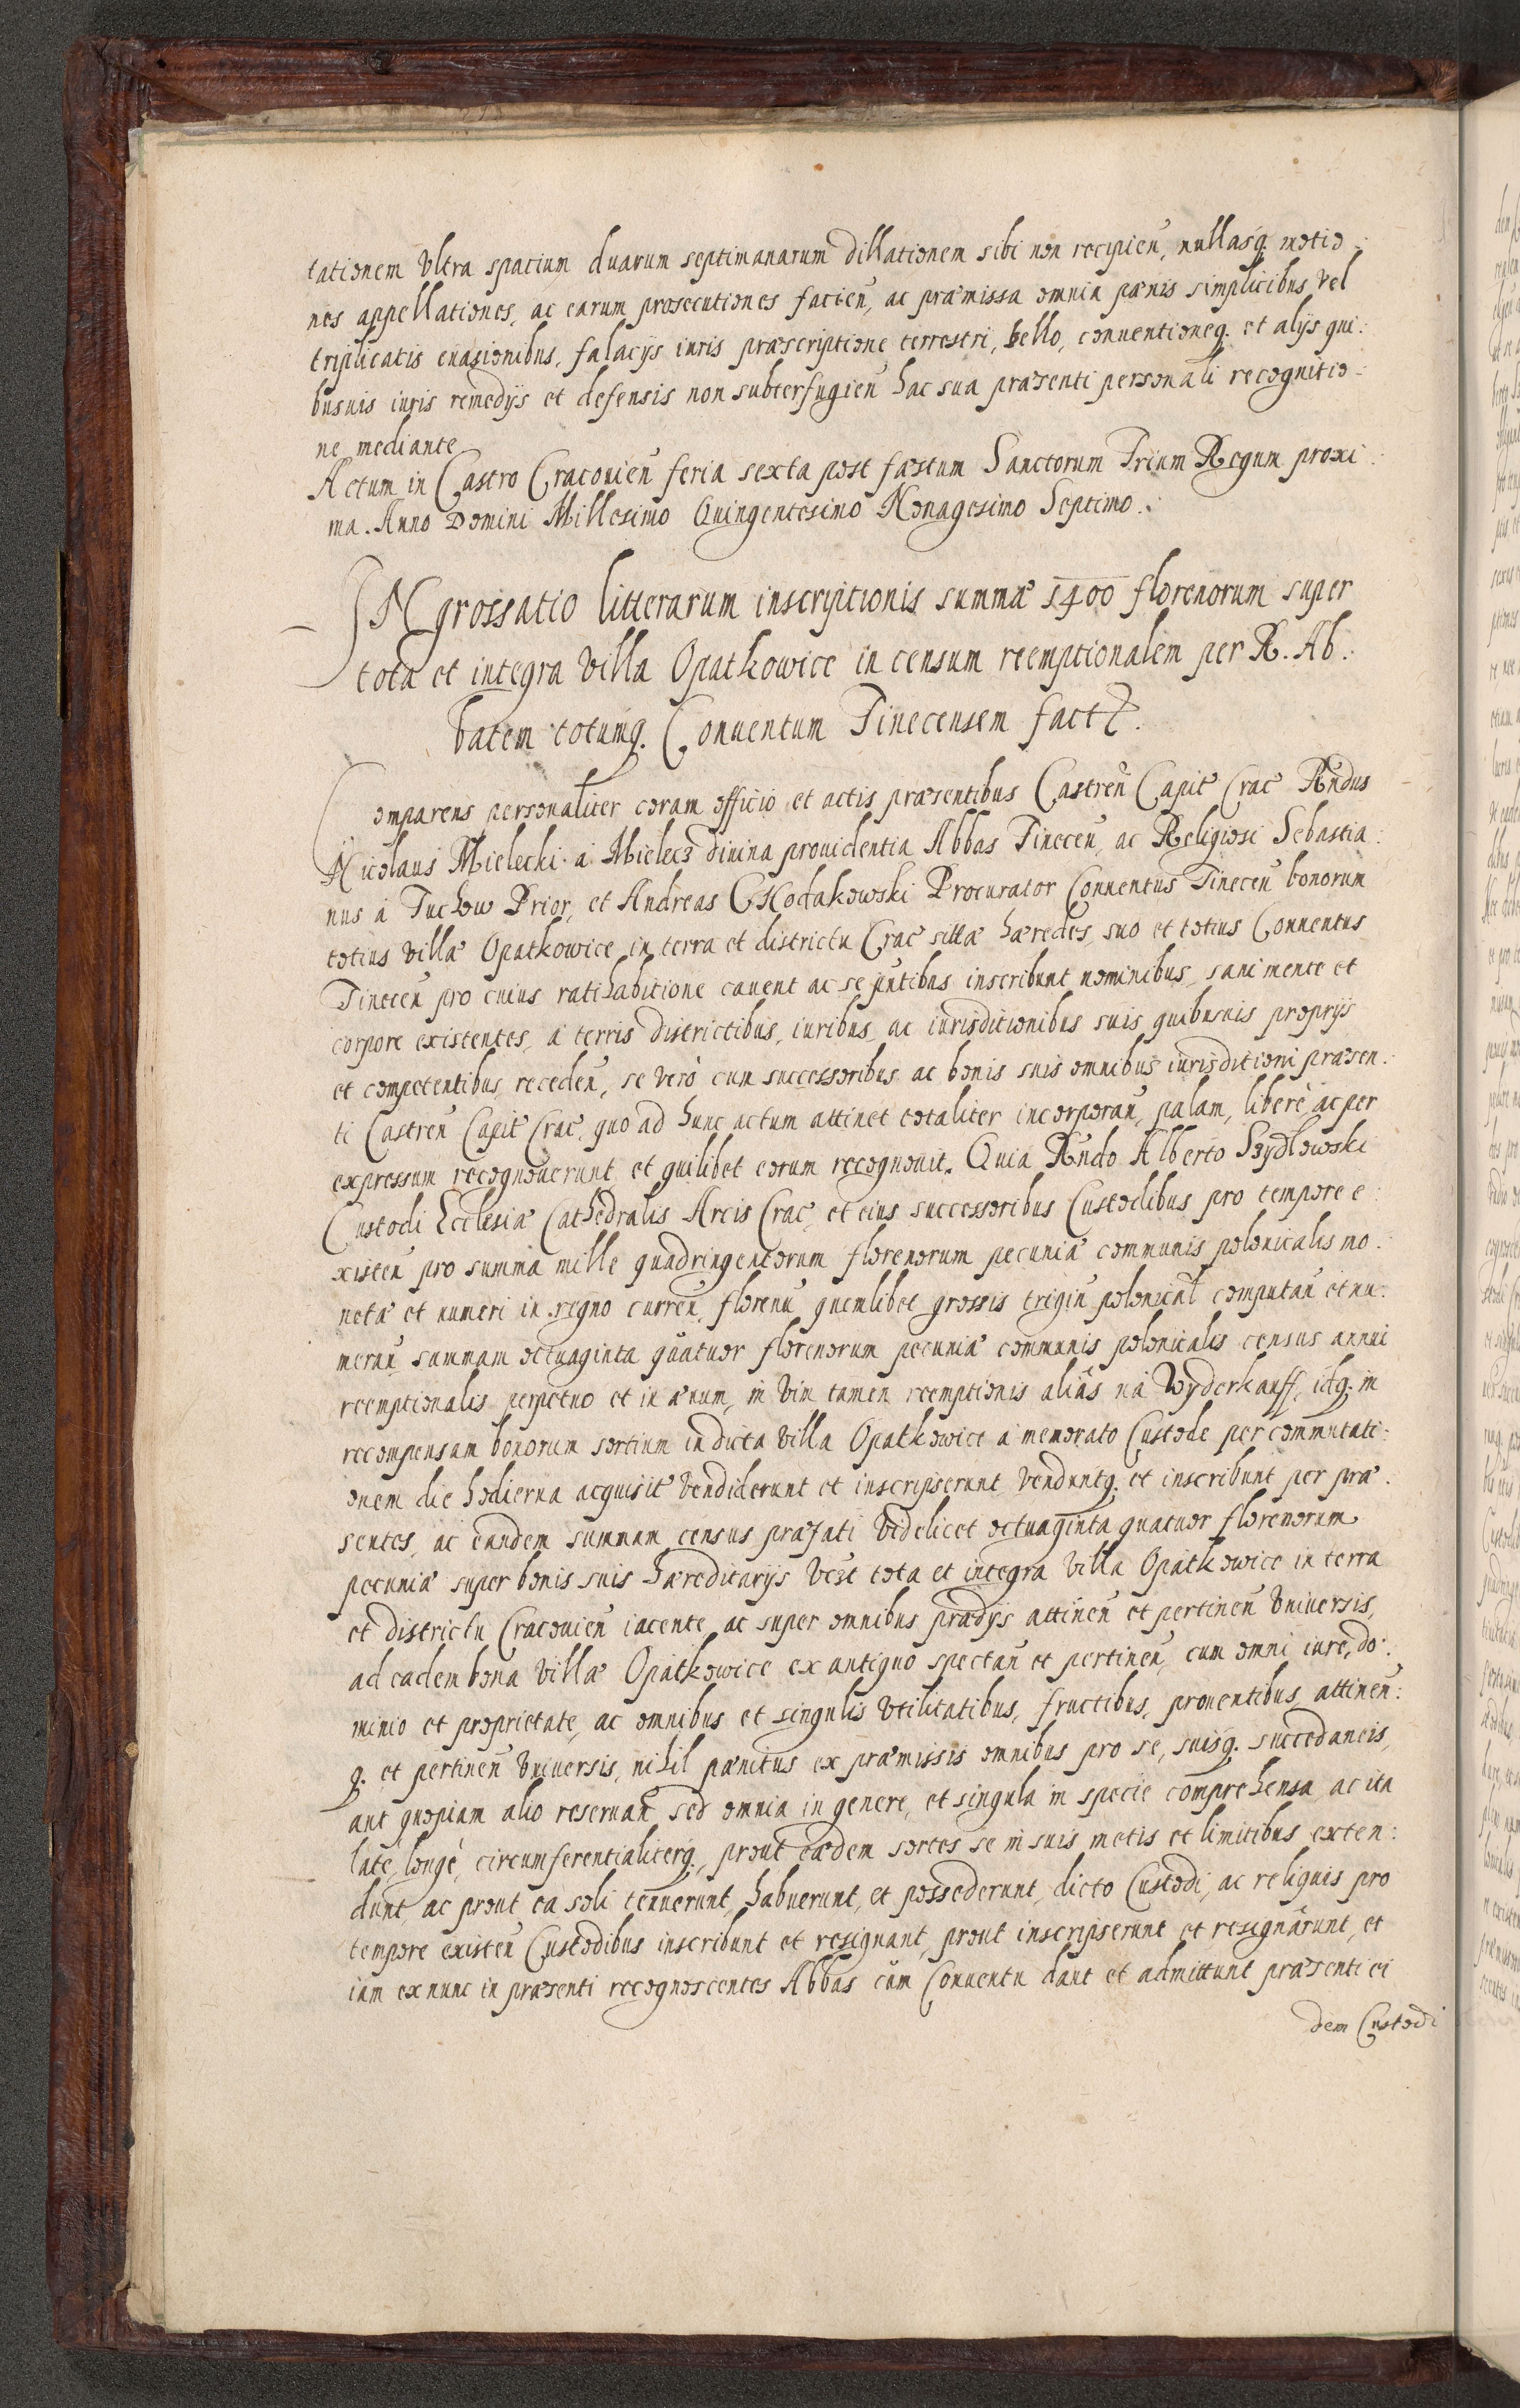 tationem Vltra spatium duarum septimanarum dillationem sibi non recipien̄, nullasq. motio:
nes appellationes, ac earum prosecutiones facien̄, ac præmissa omnia pænis simplicibus, vel
triplicatis euasionibus, falacijs iuris præscriptione terrestri, bello, conuentioneq. et alijs qui:
busuis iuris remedijs et defensis non subterfugien̄ hac sua præsenti personali recognitio:
ne mediante
Actum in Castro Cracouien̄ feria sexta post fæstum Sanctorum Trium Regum proxi:
ma. Anno Domini Millesimo Quingentesimo Nonagesimo Septimo.:
INgrossatio litterarum inscriptionis summæ 1400 florenorum super
tota et integra Villa Opatkowice in censum reemptionalem per R. Ab:
batem totumq. Conuentum Tinecensem fact
Comparens personaliter coram officio et actis præsentibus Castren̄ Capit Crac Rn̄dus
Nicolaus Mielecki a Mielecz diuina prouidentia Abbas Tinecen̄, ac Religiosi Sebastia:
nus à Tuchow Prior, et Andreas Procurator Conuentus Tinecen̄ bonorum
totius Villæ Opatkowice in terra et districtu Crac sittæ hæredes, suo et totius Conuentus
Tinecen̄ pro cuius ratihabitione cauent ac se pn̄tibus inscribunt nominibus, sani mente et
corpore existentes, à terris districtibus, iuribus, ac iurisditionibus suis quibusuis proprijs
et competentibus receden̄, se verò cum successoribus ac bonis suis omnibus iurisditioni præsen:
ti Castren̄ Capit Crac, quo ad hunc actum attinet totaliter incorporan̄, palam, liberè ac per
expressum recognouerunt et quilibet eorum recognouit. Quia Rn̄do Alberto Szydlowski
Custodi Ecclesiæ Cathedralis Arcis Crac, et eius successoribus Custodibus pro tempore e:
xisten̄ pro summa mille quadringentorum florenorum pecuniæ communis polonicalis mo:
netæ et numeri in regno curren̄, florenū quemlibet grossis trigin̄ polonical computan̄ et nu:
meran̄ summam octuaginta quatuor florenorum pecuniæ communis polonicalis census annui
reemptionalis perpetuo et in æuum, in vim tamen reemptionis aliâs na Wyderkauff, idq. in
recompensam bonorum sortium in dicta Villa Opatkowice a memorato Custode per commutati:
onem die hodierna acquisit vendiderunt et inscripserunt Venduntq. et inscribunt per præ:
sentes, ac eandem summam census præfati Videlicet octuaginta quatuor florenorum
pecuniæ super bonis suis hæreditarijs Vczt tota et integra Villa Opatkowice in terra
et districtu Cracouien̄ iacente, ac super omnibus prædijs attinen̄ et pertinen̄ Vniuersis,
ad eadem bona Villæ Opatkowice ex antiquo spectan̄ et pertinen̄, cum omni iure, do:
minio et proprietate, ac omnibus et singulis Vtilitatibus, fructibus, prouentibus, attinen̄:
q. et pertinen̄ Vniuersis, nihil pænitus ex præmissis omnibus pro se, suisq. succedaneis,
aut quopiam alio reseruan̄ sed omnia in genere, et singula in specie comprehensa, ac ita
late, longè, circumferentialiterq., prout eædem sortes se in suis metis et limitibus exten:
dunt, ac prout ea soli tenuerunt, habuerunt, et possederunt, dicto Custodi, ac reliquis pro
tempore existen̄ Custodibus inscribunt et resignant, prout inscripserunt et resignârunt, et
iam ex nunc in præsenti recognoscentes Abbas cum Conuentu dant et admittunt præsenti ei
dem Custodi